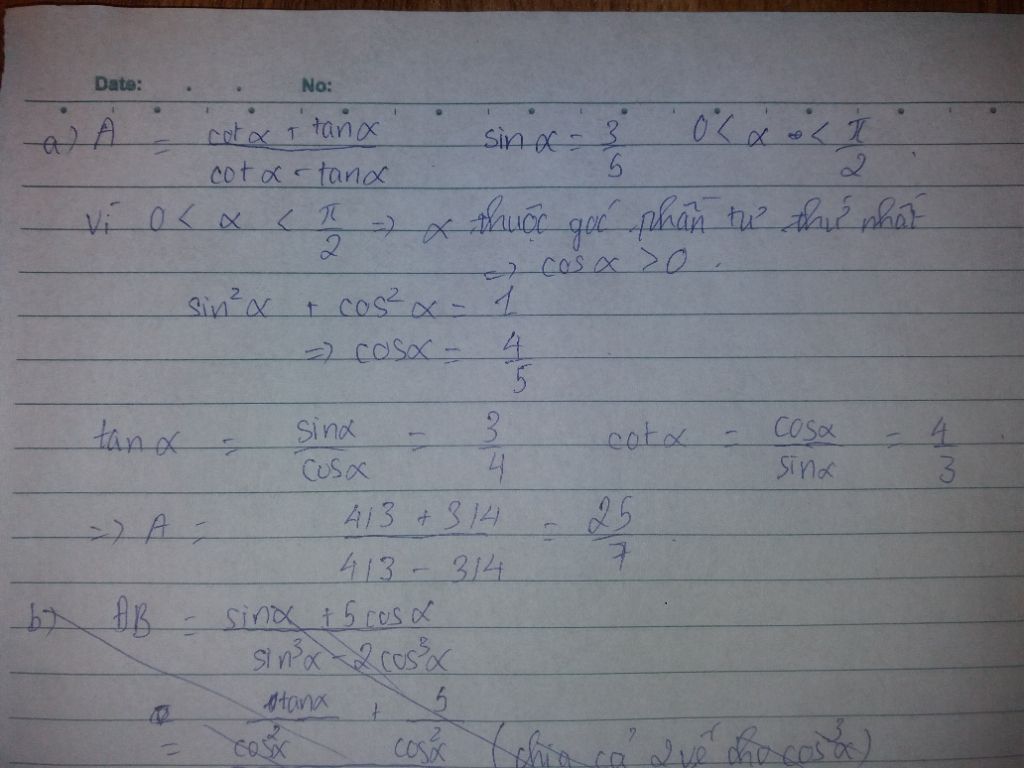 Date: . . No:
a) A = (cotα + tanα)/(cotα - tanα) sinα = 3/5 0 < α < π/2.
Vì 0 < α < π/2 => α thuộc góc phần tư thứ nhất
=> cosα > 0.
sin²α + cos²α = 1
=> cosα = 4/5
tanα = sinα/cosα = 3/4 cotα = cosα/sinα = 4/3
=> A = (4/3 + 3/4)/(4/3 - 3/4) = 25/7.
b) B = (sinα + 5cosα)/(sin³α - 2cos³α)
= tanα/cos²α + 5/cos²α (chia cả 2 vế cho cos³α)